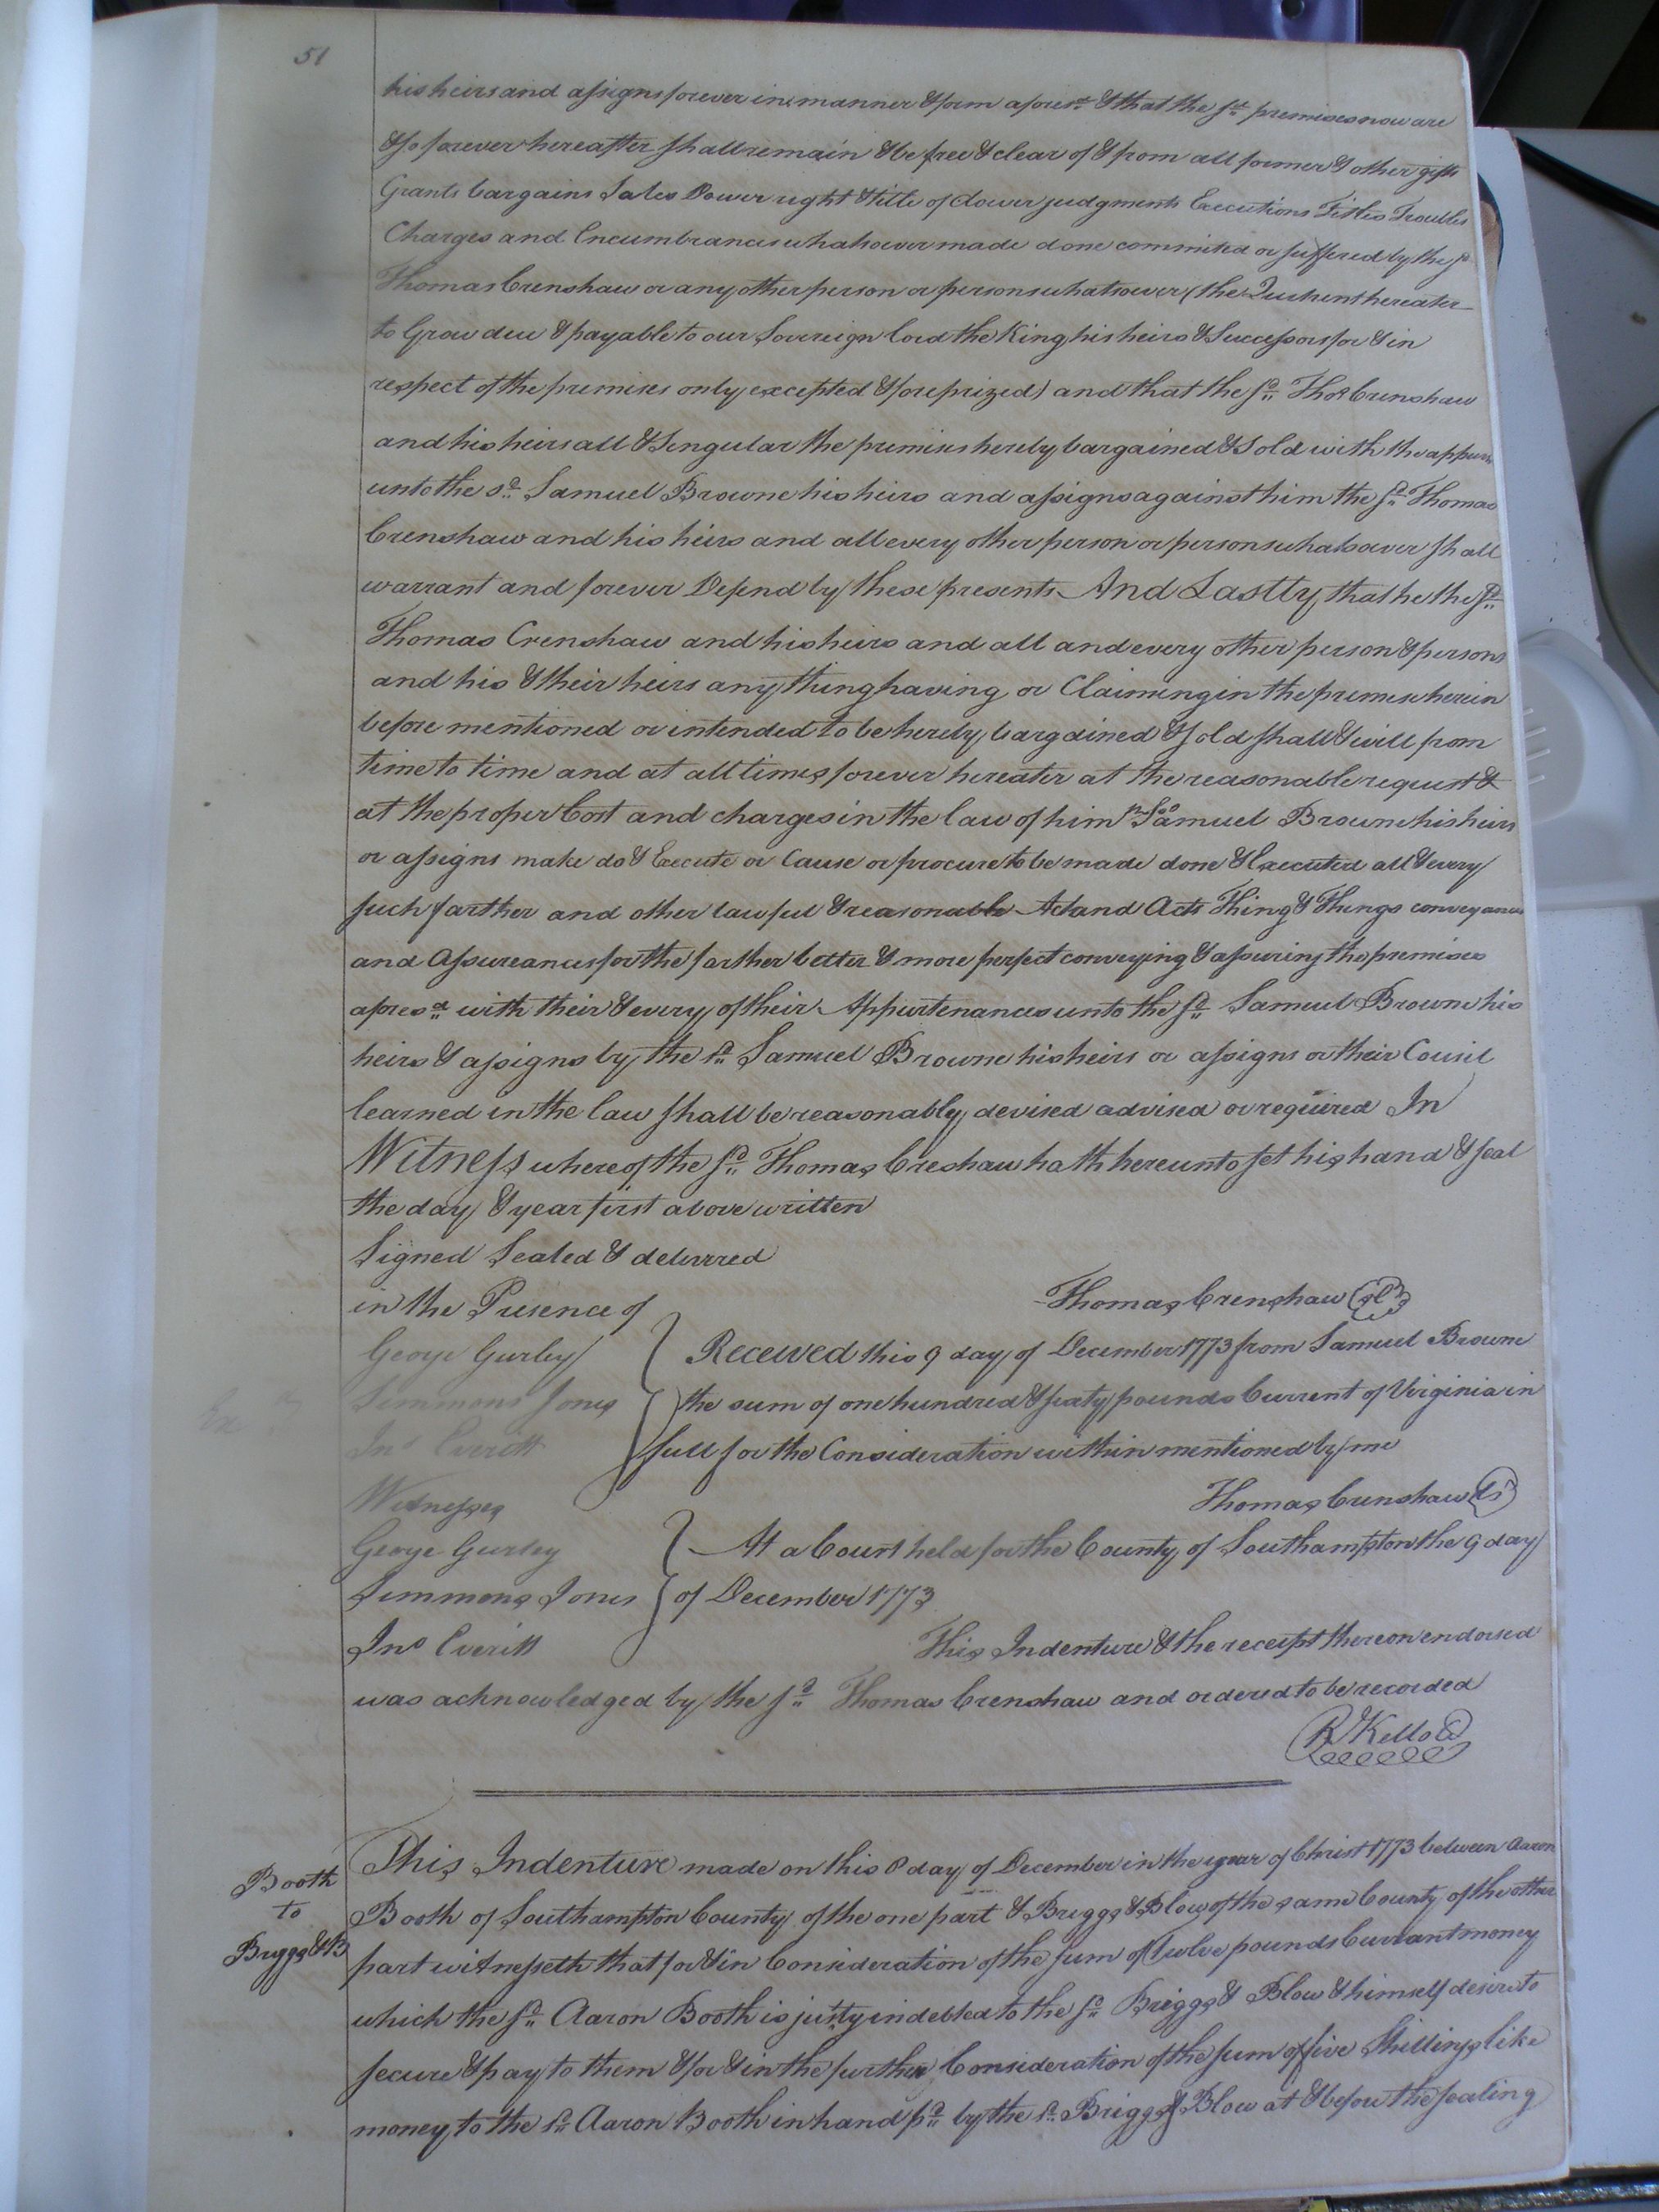 51
his heirs and assigns forever in manner & form afores.d & that the s.d premises now are
& so forever hereafter shall remain & be free & clear of & from all former & other gifts
Grants bargains Sales Dower right & title of dower judgments Executions Titles Troubles
Charges and Encumbrances whatsoever made done commited or suffered by the s.d
Thomas Crenshaw or any other person or persons whatsoever (the Quitrents hereater
to Grow due & payable to our Sovereign lord the King his heirs & Successors for & in
respect of the premises only excepted & foreprized) and that the s.d Tho.s Crenshaw
and his heirs all & Singular the premises hereby bargained & Sold with the appurs
unto the s.d Samuel Browne his heirs and assigns against him the s.d Thomas
Crenshaw and his heirs and all every other person or persons whatsoever shall
warrant and forever Defend by these presents And Lastly that he the s.d
Thomas Crenshaw and his heirs and all and every other person & persons
and his & their heirs any thing having or Claiming in the premises herein
before mentioned or intended to be hereby bargained & sold shall & will from
time to time and at all times forever hereater at the reasonable request &
at the proper Cost and charges in the law of him Samuel Browne his heirs
or assigns make do & Execute or Cause or procure to be made done & Executed all & every
such farther and other lawful & reasonable Act and Acts Thing & Things conveyances
and Assureances for the farther better & more perfect conveying & assuring the premises
afores.d with their & every of their Appurtenances unto the s.d Samuel Browne his
heirs & assigns by the s.d Samuel Browne his heirs or assigns or their Cousil
learned in the law shall be reasonably devised advised or required In
Witness whereof the s.d Thomas Creshaw hath hereunto set his hand & seal
the day & year first above written
Signed Sealed & delivered
in the Presence of
Thomas Crenshaw (SL)
George Gurley
Simmons Jones
Jn.o Everitt
Received this 9 day of December 1773 from Samuel Browne
the sum of one hundred & sixty pounds Current of Virginia in
full for the Consideration within mentioned by me
Thomas Crenshaw (LS)
Witnesses
George Gurley
Simmons Jones
Jn.o Everitt
At a Court held for the County of Southampton the 9 day
of December 1773
This Indenture & the receipt thereon endorsed
was acknowledged by the s.d Thomas Crenshaw and ordered to be recorded
R Kello C
Booth
to
Briggs & B
This Indenture made on this 8 day of December in the year of Christ 1773 between Aaron
Booth of Southampton County of the one part & Briggs & Blow of the same County of the other
part witnesseth that for & in Consideration of the sum of Twelve pounds Currant money
which the s.d Aaron Booth is justly indebted to the s.d Briggs & Blow & himself desire to
secure & pay to them & for & in the further Consideration of the sum of five Shillings like
money to the s.d Aaron Booth in hand p.d by the s.d Briggs & Blow at & before the sealing